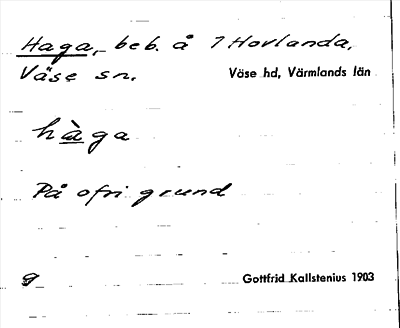 Haga, beb. å 7 Hovlanda,
Väse sn. Väse hd, Värmlands län
hàga
På ofri grund
g Gottfrid Kallstenius 1903